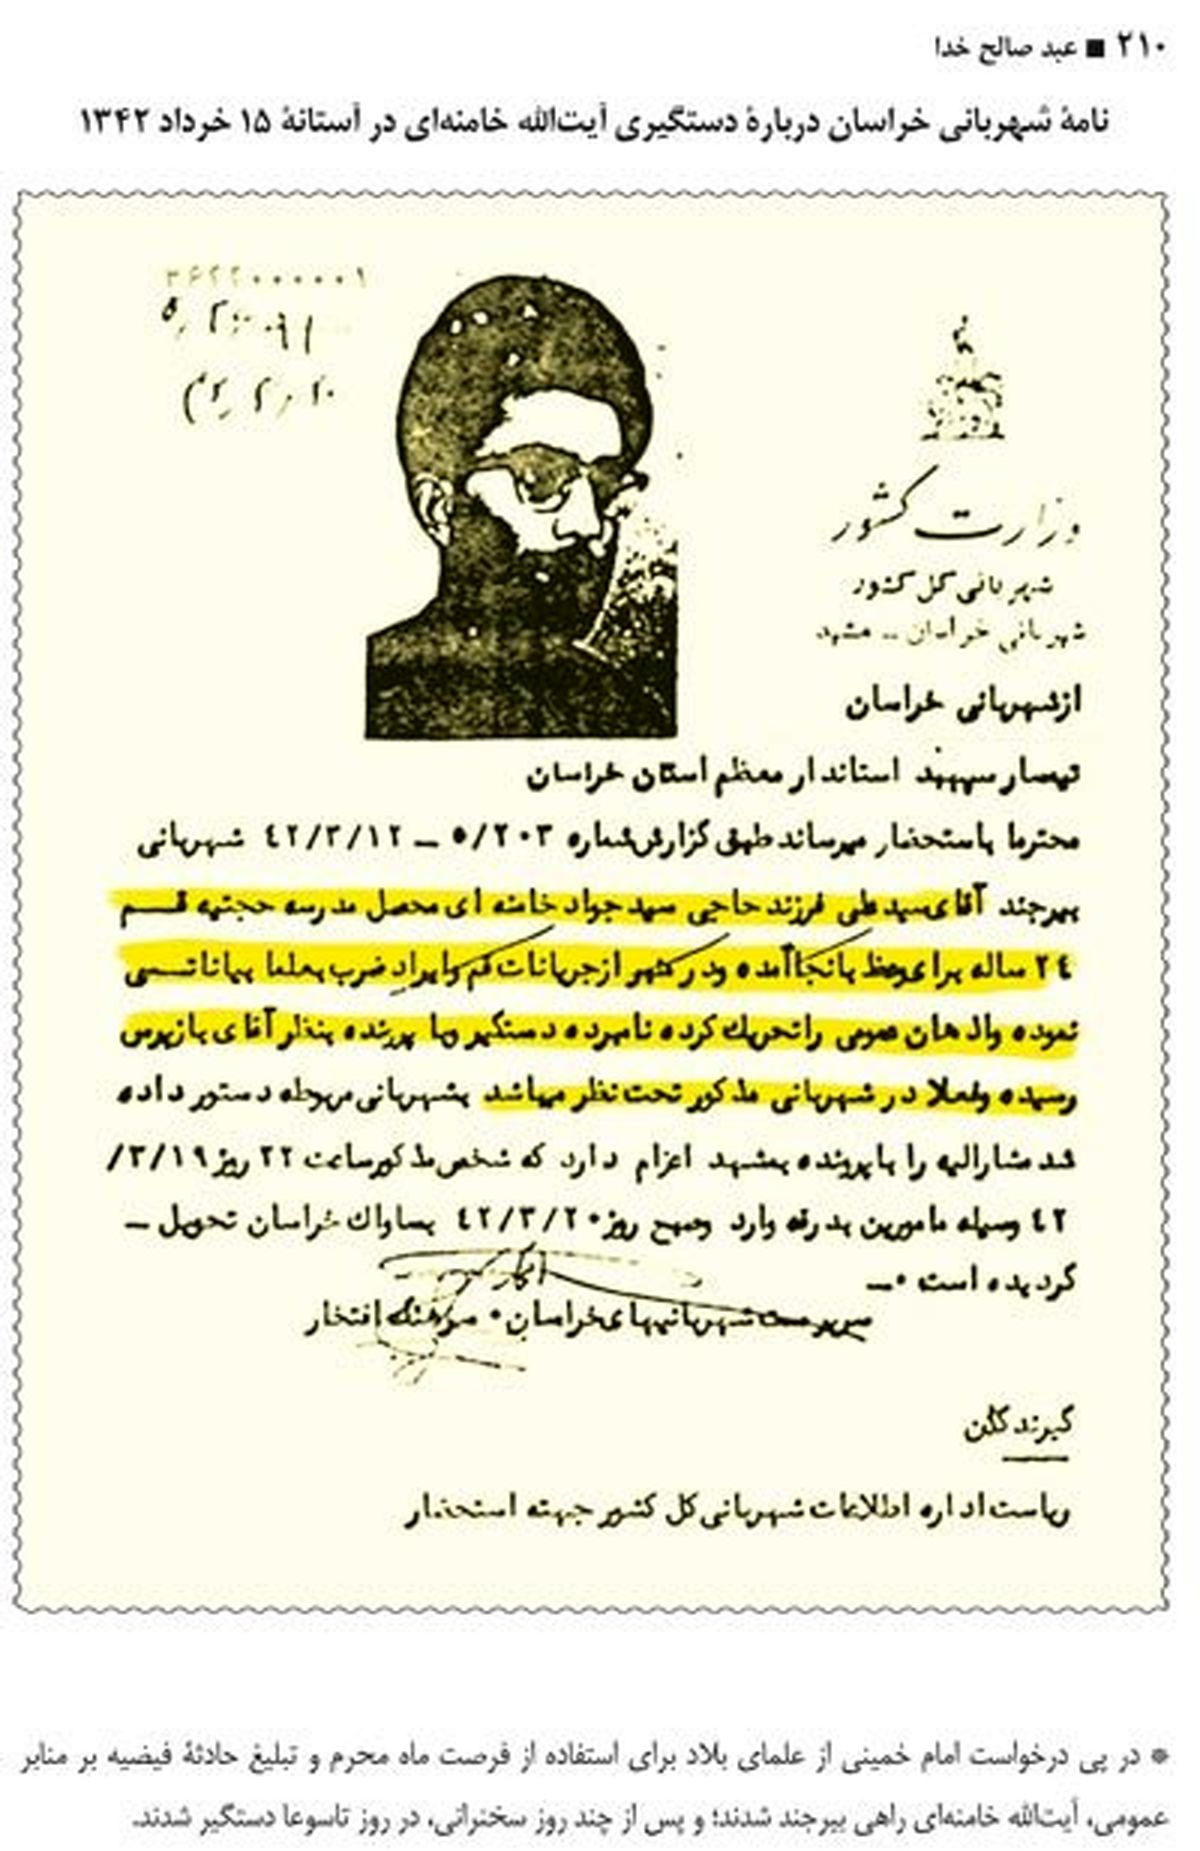 ۲۱۰ ■ عبد صالح خدا
نامهٔ شهربانی خراسان دربارهٔ دستگیری آیت‌الله خامنه‌ای در آستانهٔ ۱۵ خرداد ۱۳۴۲
وزارت کشور
شهربانی کل کشور
شهربانی خراسان ـ مشهد
از شهربانی خراسان
تیمسار سپهبد استاندار معظم استان خراسان
محترما باستحضار میرساند طبق گزارش شماره ۵/۲۰۳ ـ ۴۲/۳/۱۲ شهربانی
بیرجند آقای سید علی فرزند حاجی سید جواد خامنه ای محصل مدرسه حجتیه قم
۲۴ ساله برای وعظ بانجا آمده و در منبر از جریانات قم و ایراد ضرب بعلما بیاناتی
نموده و اذهان عمومی را تحریک کرده نامبرده دستگیر و با پرونده بنظر آقای بازپرس
رسیده و فعلا در شهربانی مذکور تحت نظر میباشد بشهربانی مربوطه دستور داده
شد مشارالیه را با پرونده بمشهد اعزام دارد که شخص مذکور ساعت ۲۲ روز ۳/۱۹/
۴۲ وسیله مامورین بدرقه وارد و صبح روز ۴۲/۳/۲۰ بساواک خراسان تحویل ـ
گردیده است ۰ـ
سرپرست شهربانیهای خراسان۰ سرهنگ افتخار
گیرندگان
ریاست اداره اطلاعات شهربانی کل کشور جهته استحضار
* در پی درخواست امام خمینی از علمای بلاد برای استفاده از فرصت ماه محرم و تبلیغ حادثهٔ فیضیه بر منابر
عمومی، آیت‌الله خامنه‌ای راهی بیرجند شدند؛ و پس از چند روز سخنرانی، در روز تاسوعا دستگیر شدند.